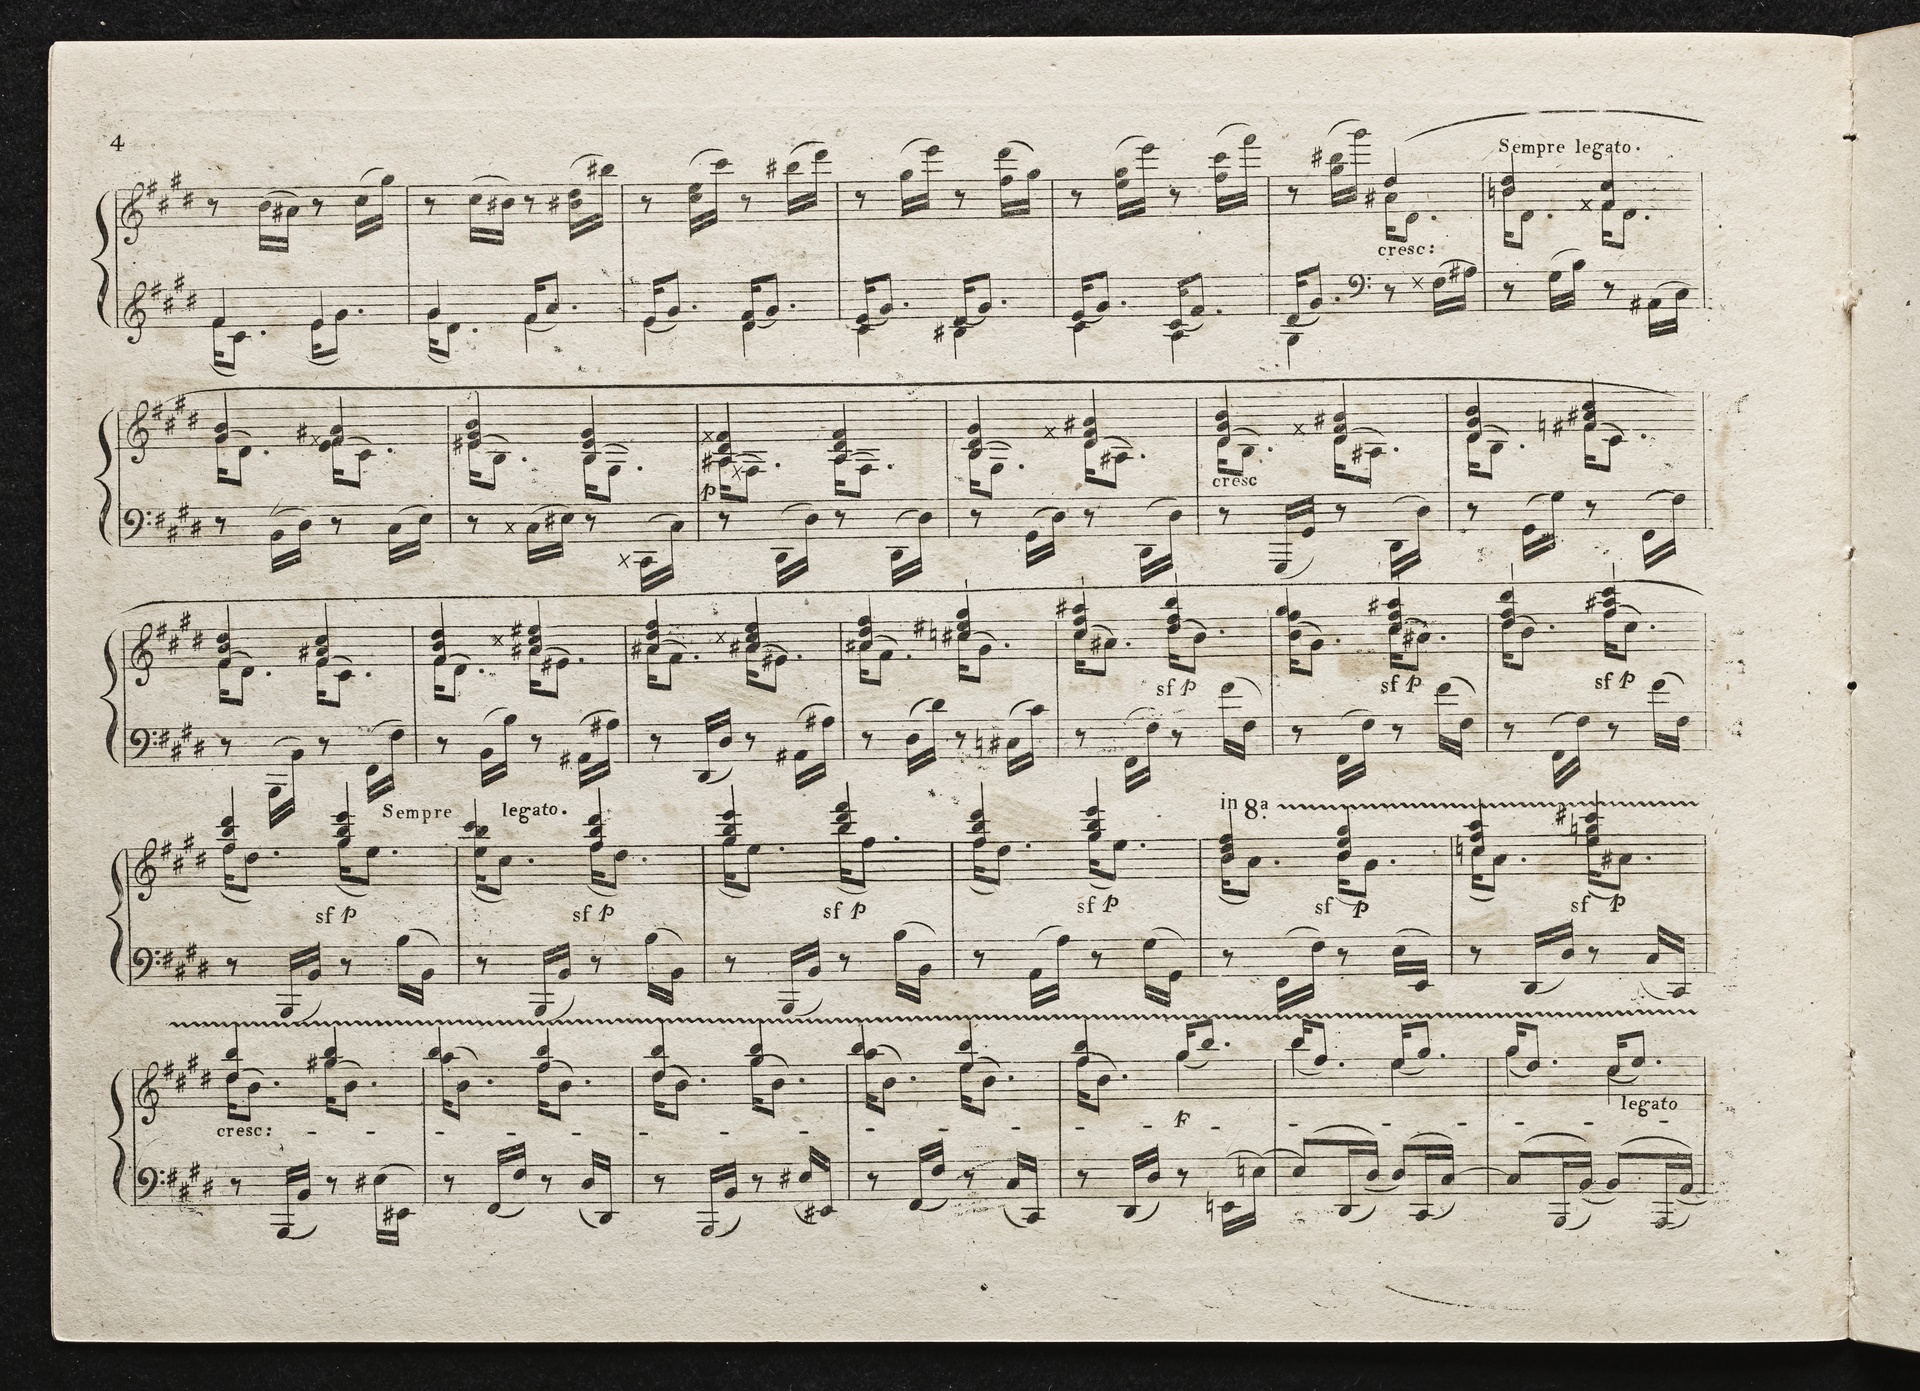 4
Sempre legato.
cresc:
p
cresc
sf p
sf p
sf p
Sempre legato.
in 8a
sf p
sf p
sf p
sf p
sf p
sf p
cresc:
F
legato